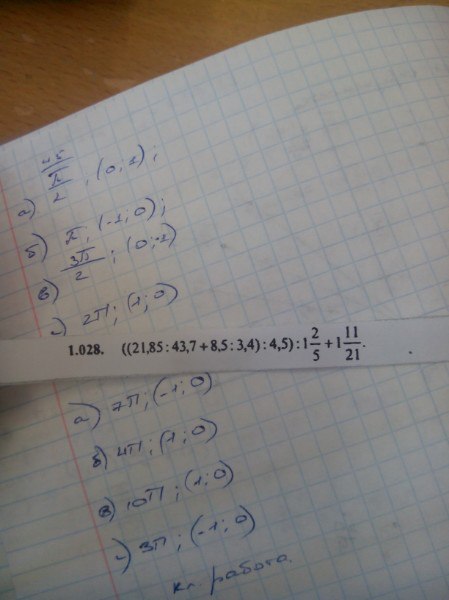 45
а) π/2 ; (0; 1);
б) π; (-1; 0);
в) 3π/2 ; (0; -1)
г) 2π; (1; 0)
1.028. ((21,85 : 43,7 + 8,5 : 3,4) : 4,5) : 1 2/5 + 1 11/21.
а) 7π; (-1; 0)
б) 4π; (1; 0)
в) 10π; (1; 0)
г) 3π; (-1; 0)
кл. работа.